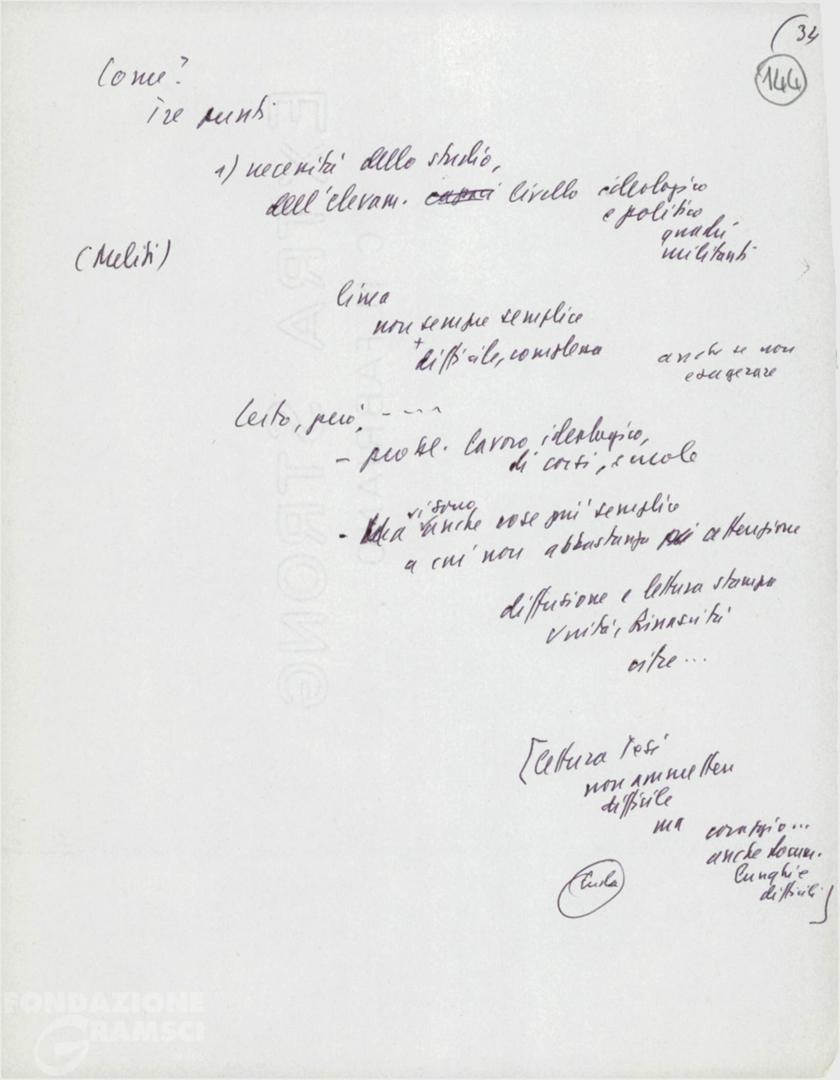 (34
144
Come?
Tre punti
1) necessità dello studio,
dell'elevam. livello ideologico
e politico
quadri
militanti
(Meliti)
linea
non sempre semplice
+
difficile, complessa
anche se non
esagerare
Certo, però, ----
- probl. lavoro ideologico,
di corsi, scuole
- Ma vi sono anche cose più semplici
a cui non abbastanza attenzione
diffusione e lettura stampa
Unità, Rinascita
oltre...
[lettura Tesi
non ammettere
difficile
ma coraggio...
anche docum.
lunghi e
difficili]
EXTRA STRONG
FABRIANO
FONDAZIONE
GRAMSCI